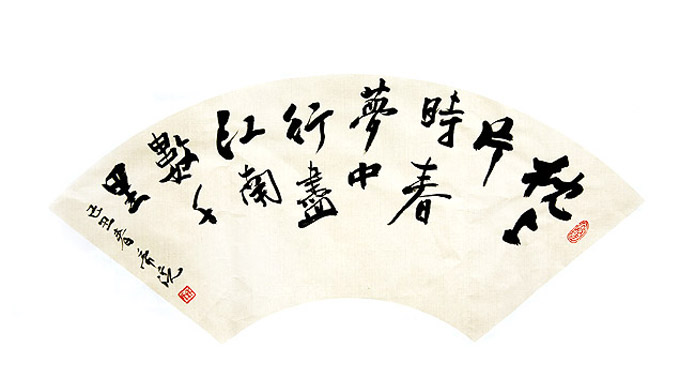 枕上
片
時春
夢中
行盡
江南
數千
里
己丑春